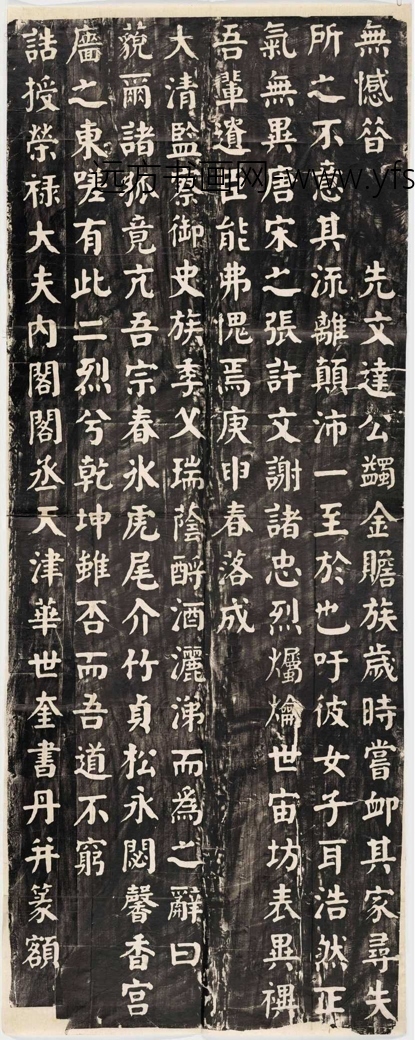 無憾昔 先文達公蠲金贍族歲時嘗卹其家尋失
所之不意其流離顛沛一至於也吁彼女子耳浩然正
氣無異唐宋之張許文謝諸忠烈爥爚世宙坊表異禩
吾輩遺世能弗愧焉庚申春落成
大清監察御史族季父瑞蔭酹酒灑涕而為之辭曰
藐爾諸孤竟亢吾宗春冰虎尾介竹貞松永閟馨香宮
廧之東嗟有此二烈兮乾坤雖否而吾道不窮
誥授榮祿大夫內閣閣丞天津華世奎書丹并篆額
远方书画网-www.yfs